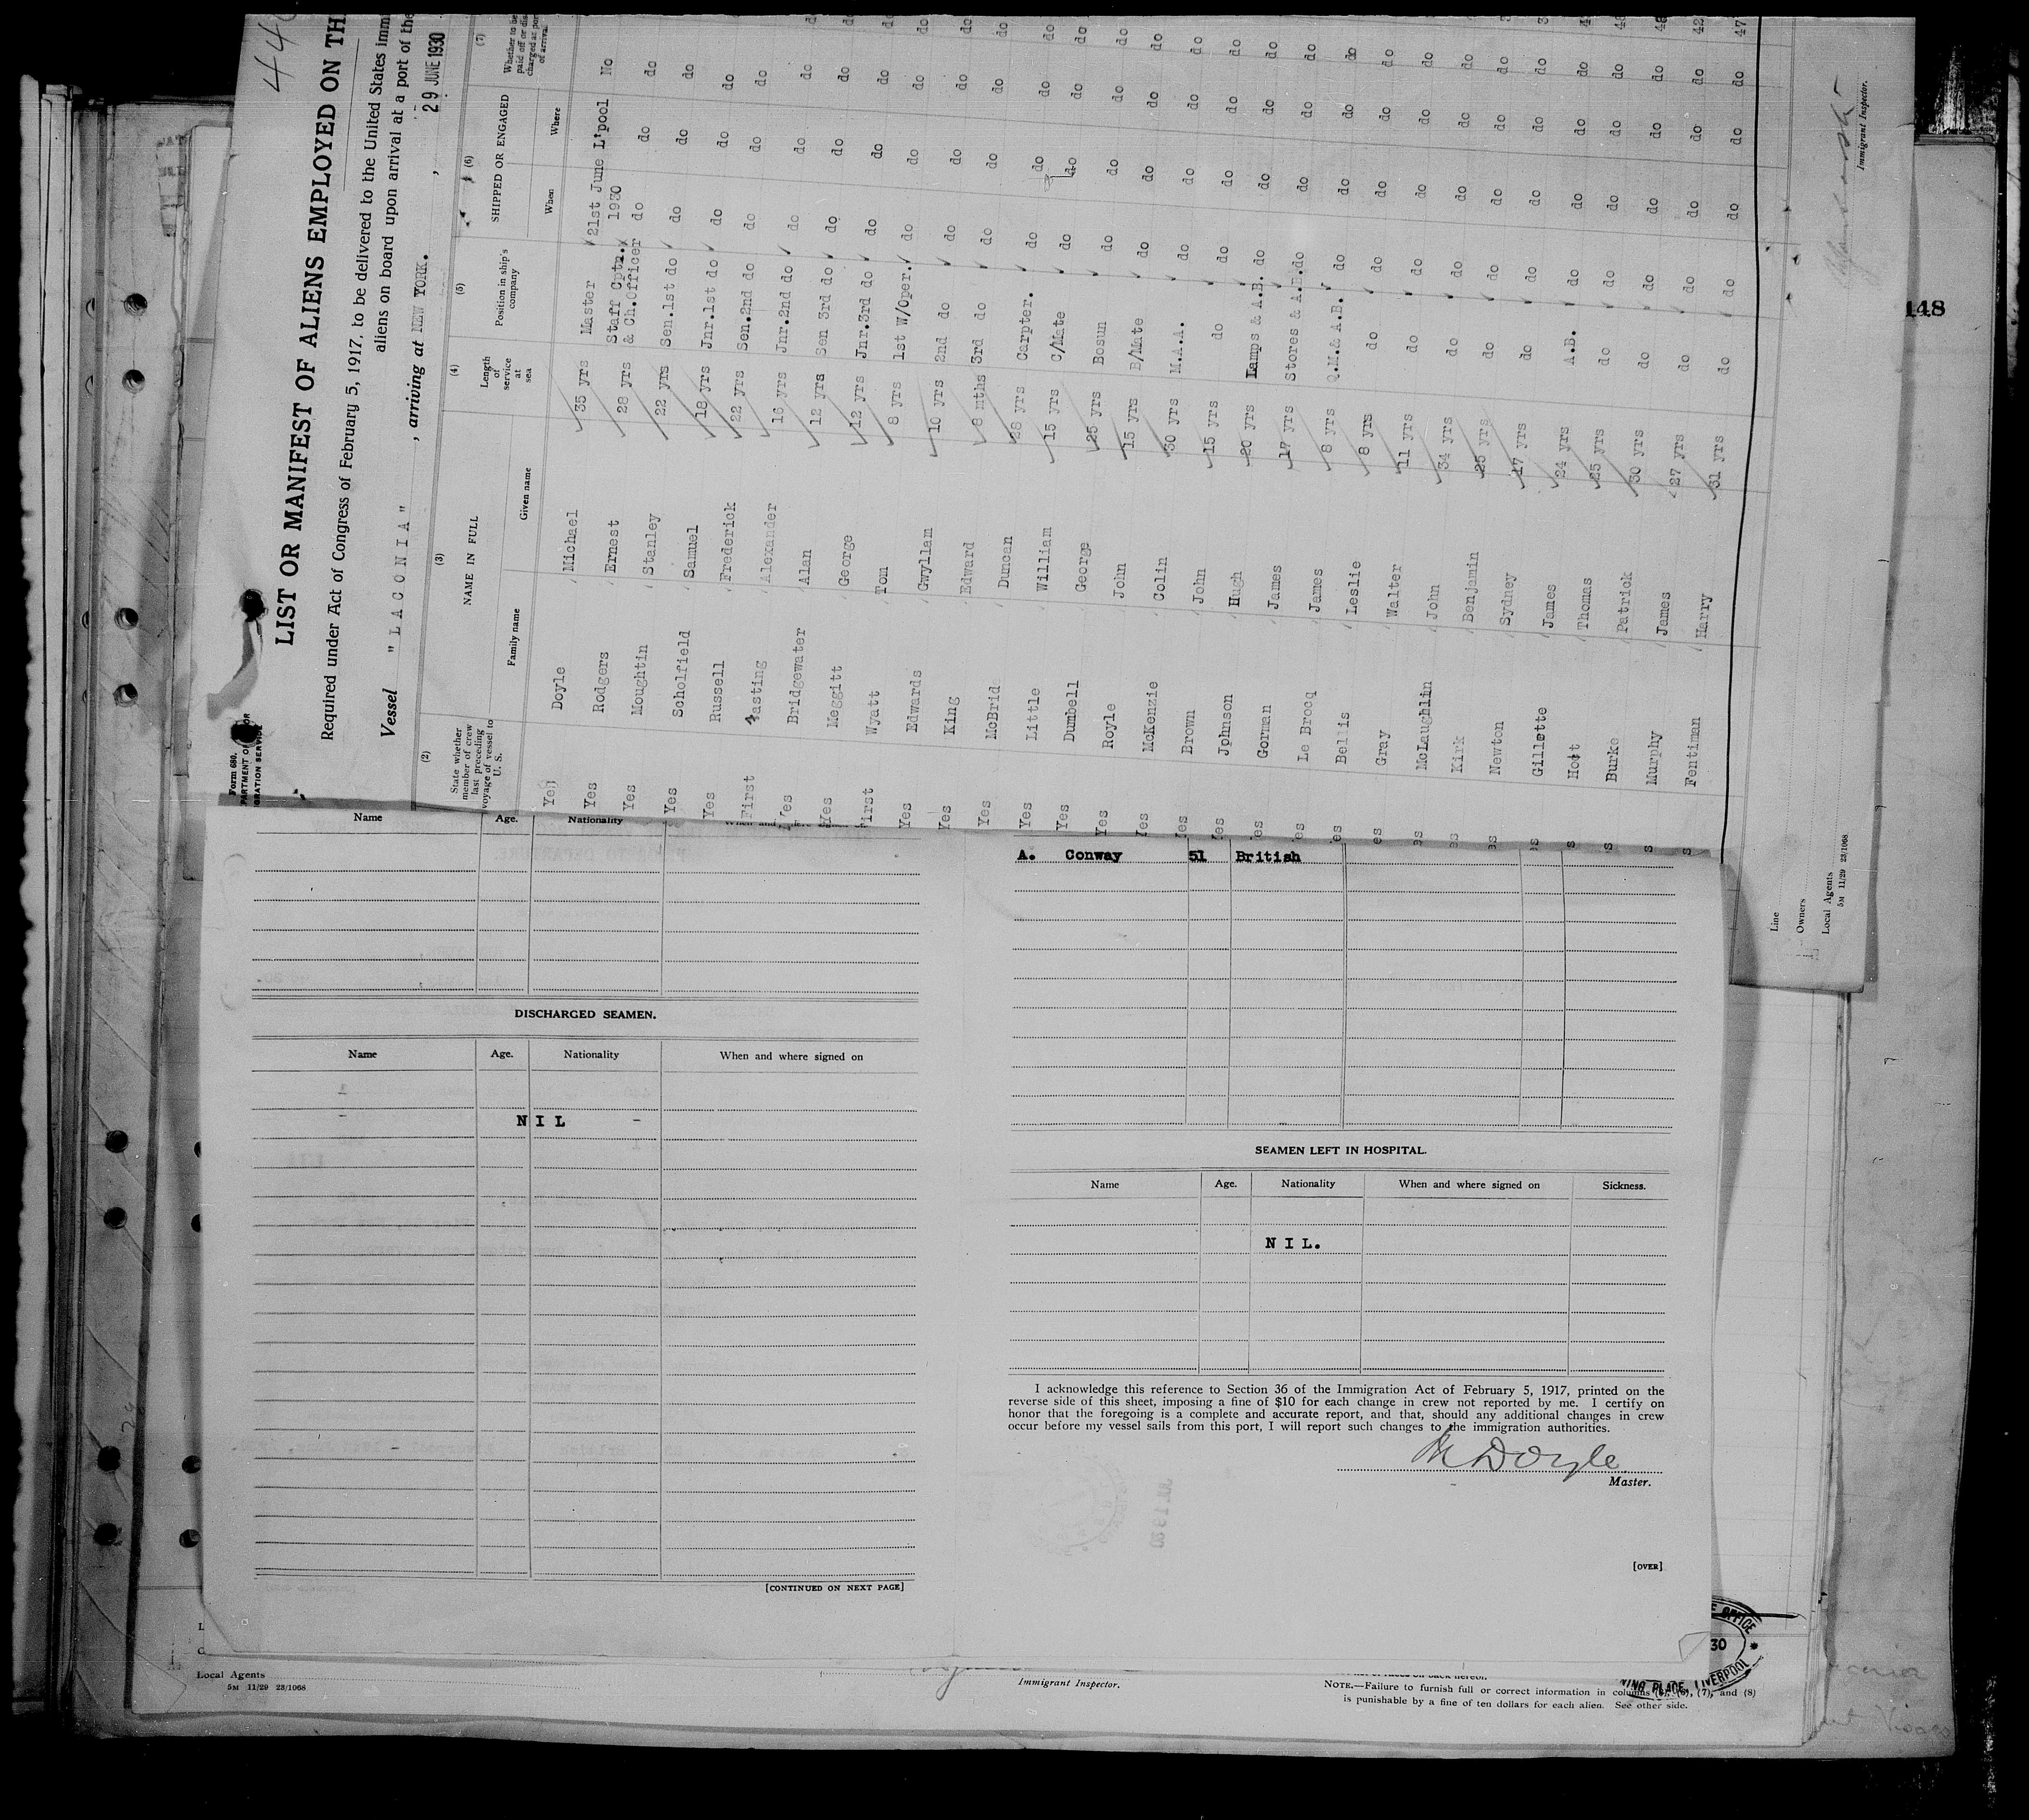 LIST OR MANIFEST OF ALIENS EMPLOYED ON
Required under Act of Congress of February 5, 1917, to be delivered to the United States
aliens on board upon arrival at a port of the
Vessel " L A C O N I A " , arriving at NEW YORK. , 29 JUNE 1930
(2) (3) (4) (5) (6) (7)
State whether member of crew last preceding voyage of vessel to U. S.
NAME IN FULL
Family name Given name
Length of service at sea
Position in ship's company
SHIPPED OR ENGAGED
When Where
Whether to be paid off or discharged at port of arrival
Yes Doyle Michael 35 yrs Master 21st June 1930 L'pool No
Yes Rodgers Ernest 28 yrs Staff Cptn. & Ch.Officer do do do
Yes Moughtin Stanley 22 yrs Sen.1st do do do do
Yes Schofield Samuel 18 yrs Jnr.1st do do do do
Yes Russell Frederick 22 yrs Sen.2nd do do do do
First Alexander 16 yrs Jnr.2nd do do do do
Yes Bridgewater Alan 12 yrs Sen 3rd do do do do
Yes Meggitt George 12 yrs Jnr.3rd do do do do
First Wyatt Tom 8 yrs 1st W/Oper. do do do
Yes Edwards Gwyllam 10 yrs 2nd do do do do
Yes King Edward 8 mths 3rd do do do do
Yes McBride Duncan 28 yrs Carpter. do do do
Yes Little William 15 yrs C/Mate do do do
Yes Dumbell George 25 yrs Bosun do do do
Yes Royle John 15 yrs B/Mate do do do
Yes McKenzie Colin 30 yrs M.A.A. do do do
Yes Brown John 15 yrs do do do do
Yes Johnson Hugh 20 yrs Lamps & A.B. do do do
Yes Gorman James 17 yrs Stores & A.B. do do do
Yes Le Brocq James 8 yrs Q.M.& A.B. do do do
es Bellis Leslie 8 yrs do do do do
es Gray Walter 11 yrs do do do do
es McLaughlin John 34 yrs do do do do
es Kirk Benjamin 25 yrs do do do do
es Newton Sydney 17 yrs do do do do
es Gillette James 24 yrs A.B. do do do
s Thomas 25 yrs do do do do
s Burke Patrick 30 yrs do do do do
s Murphy James 27 yrs do do do do
s Fentiman Harry 31 yrs do do do do
Form 680.
Immigrant Inspector.
Line
Owners
Local Agents
5M 11/29 23/1068
148
Name Age. Nationality
DISCHARGED SEAMEN.
Name Age. Nationality When and where signed on
N I L -
[CONTINUED ON NEXT PAGE]
A. Conway 51 British
SEAMEN LEFT IN HOSPITAL.
Name Age. Nationality When and where signed on Sickness.
N I L.
I acknowledge this reference to Section 36 of the Immigration Act of February 5, 1917, printed on the
reverse side of this sheet, imposing a fine of $10 for each change in crew not reported by me. I certify on
honor that the foregoing is a complete and accurate report, and that, should any additional changes in crew
occur before my vessel sails from this port, I will report such changes to the immigration authorities.
M Doyle
Master.
[OVER]
Local Agents
5M 11/29 23/1068
Immigrant Inspector.
NOTE.—Failure to furnish full or correct information in columns (5), (6), (7), and (8)
is punishable by a fine of ten dollars for each alien. See other side.
OFFICE
30
PLACE, LIVERPOOL